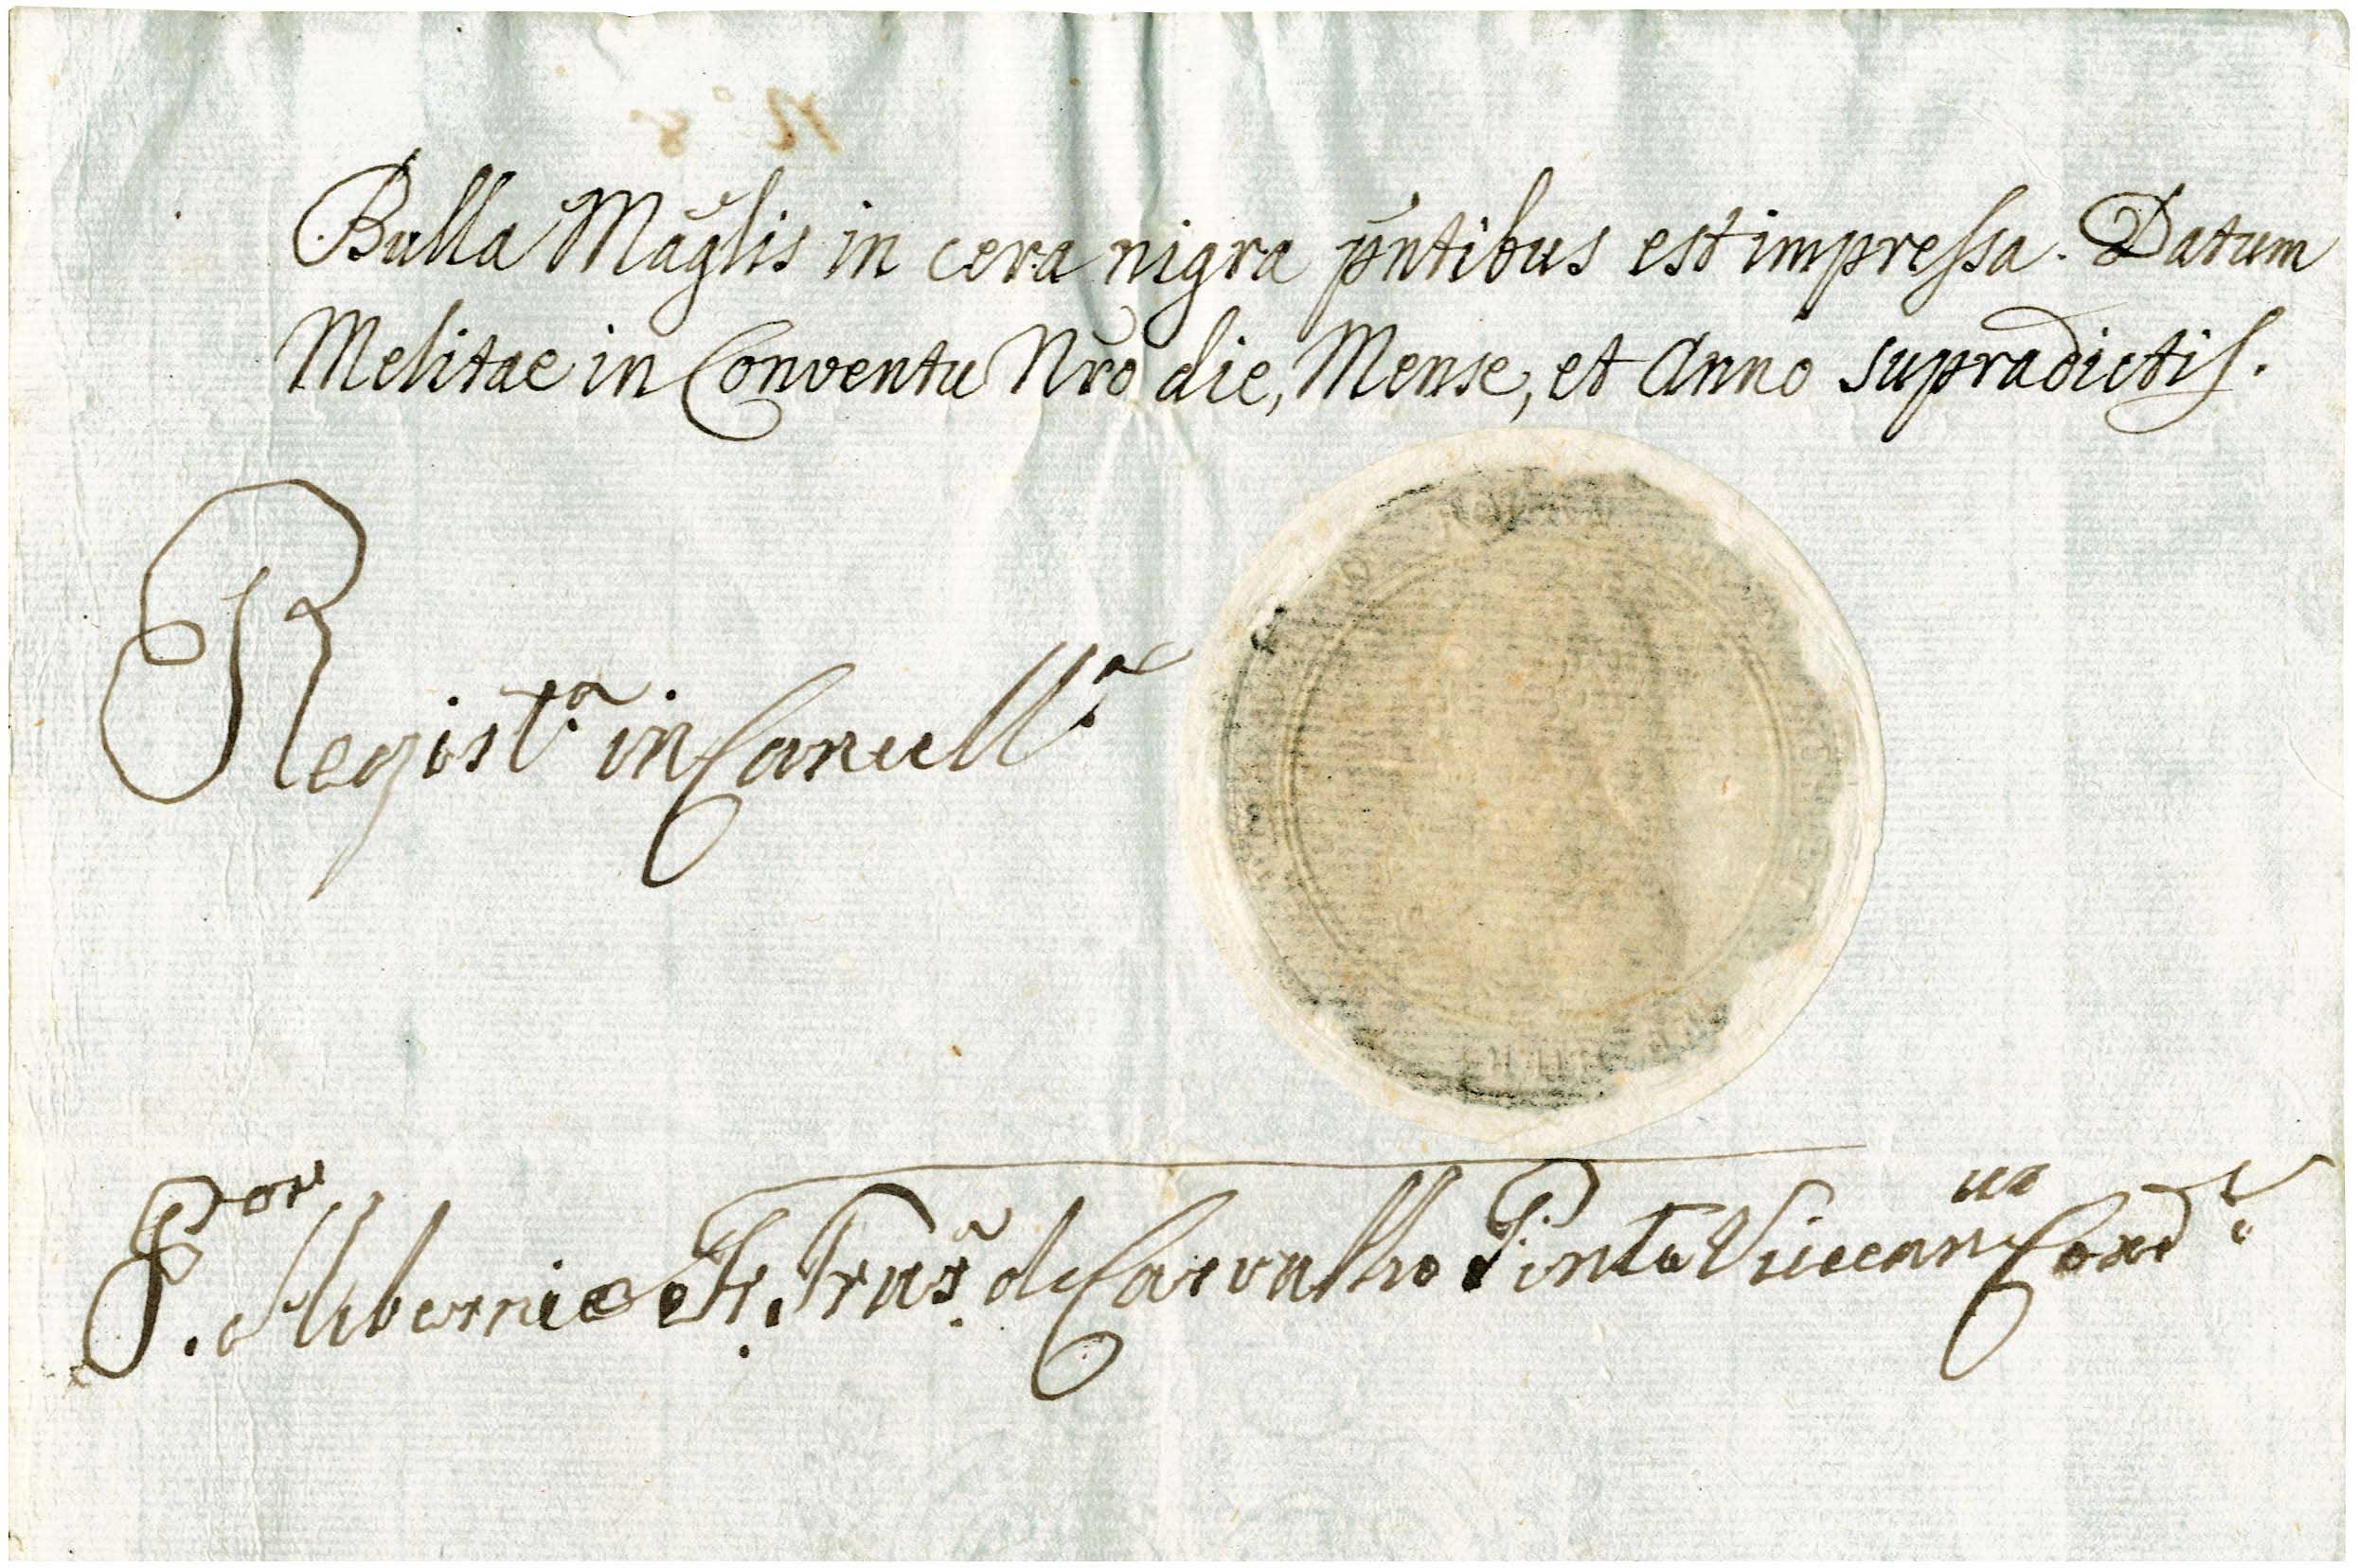 Bulla Mag̃lis in cera nigra p̃ntibus est impressa. Datum
Melitae in Conventu Nr̃o die, Mense, et Anno supradictis.
Regist.ᵃ in Cancell.ᵃ
P.ᵒʳ Hiberniae Fr. Frañ. de Carvalho Pinto Vicecan